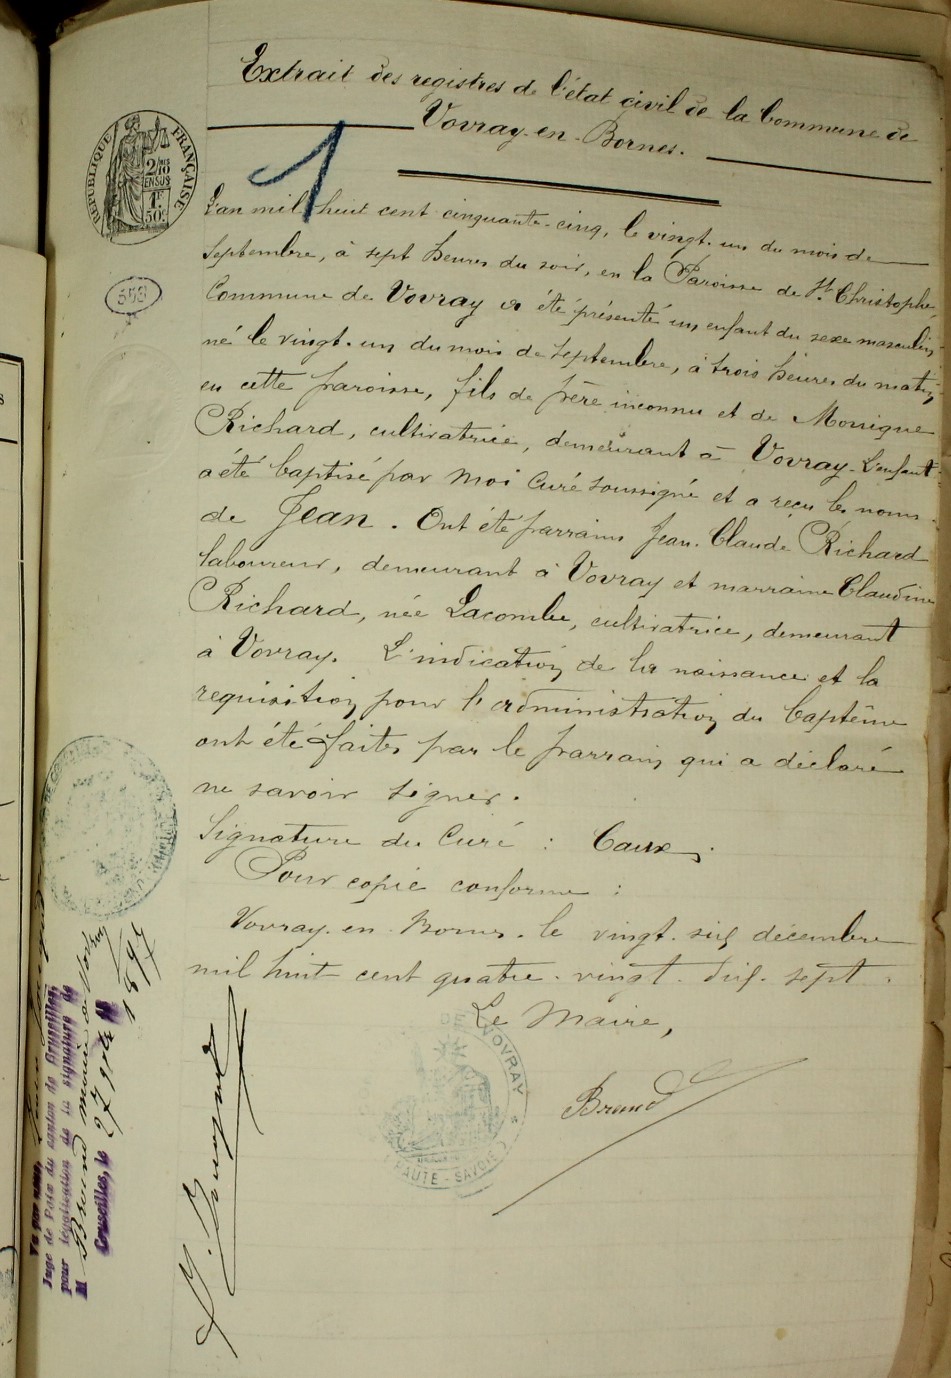 Extrait des registres de l'état civil de la Commune de
Vovray-en-Bornes.
RÉPUBLIQUE FRANÇAISE
2/10
EN SUS
1F
50c
1
L'an mil huit cent cinquante-cinq, le vingt-un du mois de
Septembre, à sept heures du soir, en la Paroisse de St. Christophe,
Commune de Vovray a été présenté un enfant du sexe masculin,
né le vingt-un du mois de Septembre, à trois heures du matin,
en cette paroisse, fils de père inconnu et de Monique
Richard, cultivatrice, demeurant à Vovray. L'enfant
a été baptisé par moi Curé soussigné et a reçu les noms
de Jean. Ont été parrains Jean-Claude Richard
laboureur, demeurant à Vovray et marraine Claudine
Richard, née Lacombe, cultivatrice, demeurant
à Vovray. L'indication de la naissance et la
requisition pour l'administration du baptême
ont été faites par le parrain qui a déclaré
ne savoir signer.
Signature du Curé : Caux.
Pour copie conforme :
Vovray-en-Bornes. le vingt-six décembre
mil huit cent quatre-vingt-dix-sept.
Le Maire,
Brand
DE VOVRAY
HAUTE-SAVOIE
Vu par nous,
Juge de Paix du canton de Cruseilles,
pour légalisation de la signature de
M Brand maire de Vovray
Cruseilles, le 27 Xbre 18
1897